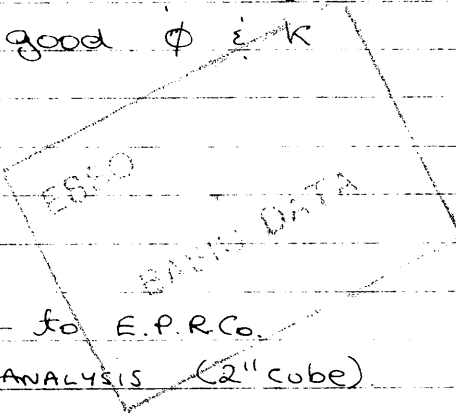 good ϕ & K
ESSO
BASIC DATA
- to E.P.R.Co.
ANALYSIS (2" cube)